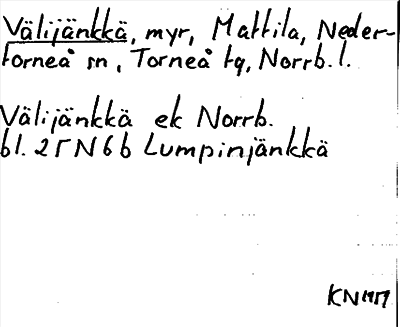 Välijänkkä, myr, Mattila, Neder-
torneå sn, Torneå tg, Norrb. l.
Välijänkkä ek Norrb.
bl. 25N6b Lumpinjänkkä